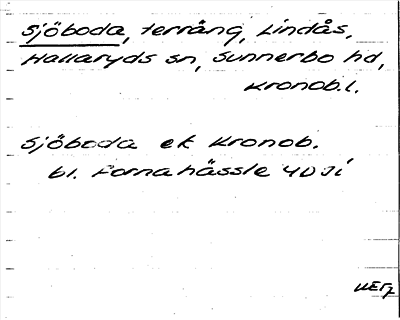 Sjöboda, terräng, Lindås,
Hallaryds sn, Sunnerbo hd,
Kronob.l.
Sjöboda ek Kronob.
bl. Fornahässle 4D Ji